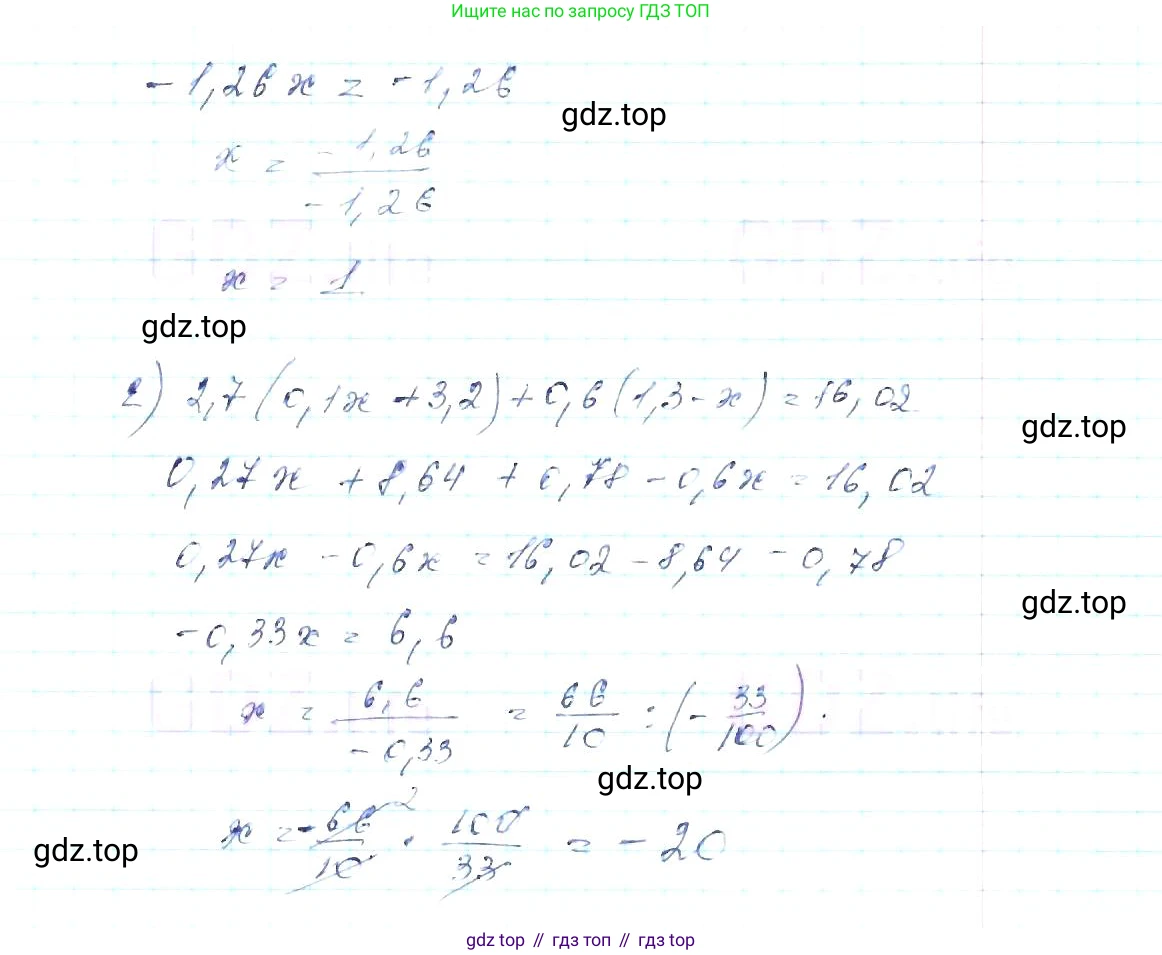 Ищите нас по запросу ГДЗ ТОП
- 1,26 x = - 1,26
gdz.top
x = - 1,26 / - 1,26
x = 1
gdz.top
2) 2,7 (0,1x + 3,2) + 0,6 (1,3 - x) = 16,02
gdz.top
0,27x + 8,64 + 0,78 - 0,6x = 16,02
0,27x - 0,6x = 16,02 - 8,64 - 0,78
gdz.top
- 0,33x = 6,6
x = 6,6 / - 0,33 = 66/10 : (- 33/100).
gdz.top
x = - 66/10 · 100/33 = - 20
2
gdz.top
gdz top // гдз топ // gdz top